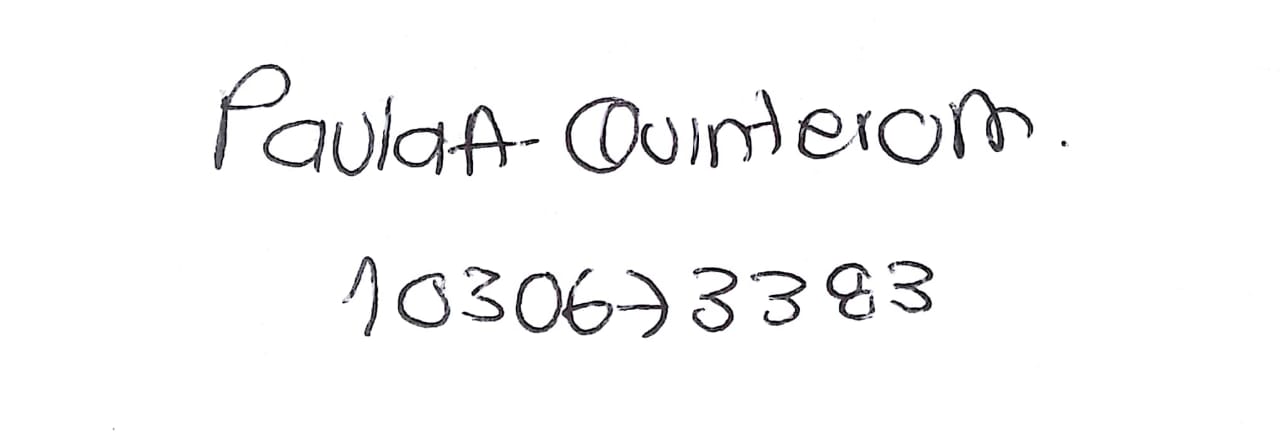 Paula A. Quintero M.
1030673383